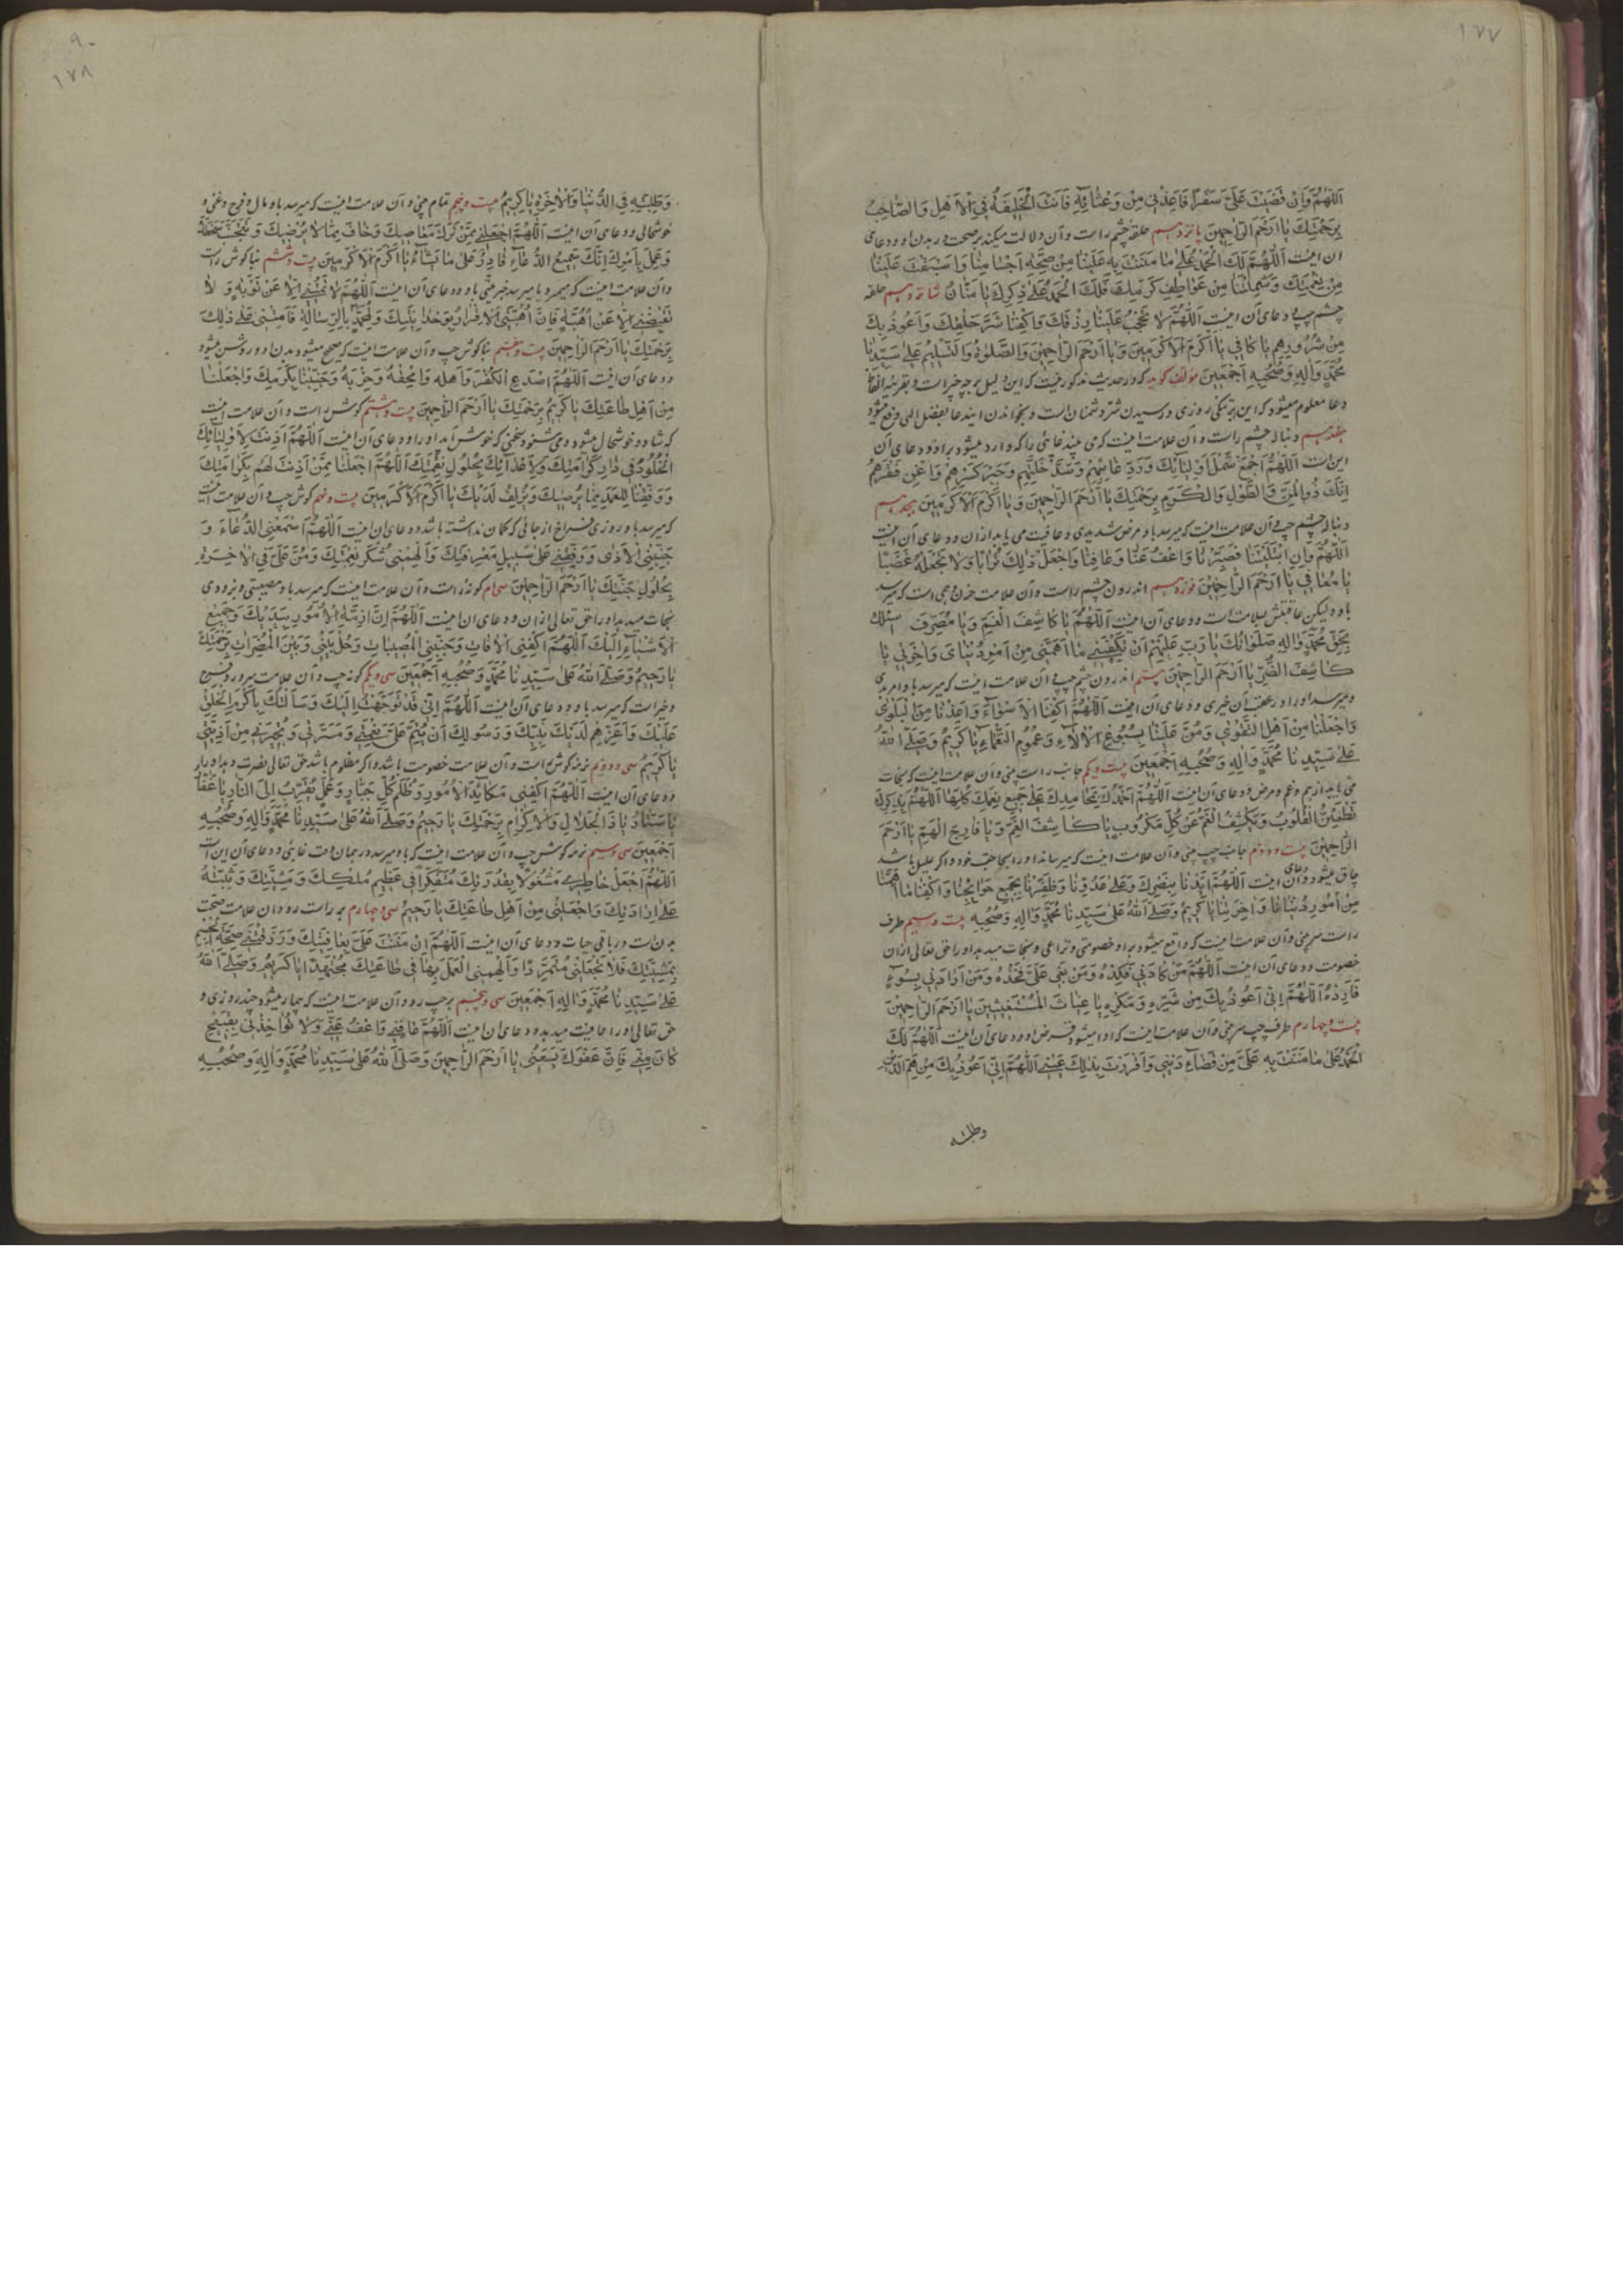 ١٧٧
اَللّٰهُمَّ وَاِنْ قَضَيْتَ عَلَيَّ سَفَرًا فَاَعِذْنِي مِنْ وَعْثَائِهِ فَاَنْتَ الْخَلِيفَةُ فِي الْاَهْلِ وَالصَّاحِبُ
بِرَحْمَتِكَ يَا اَرْحَمَ الرَّاحِمِينَ پانزدهم حلقه چشم راست و آن دلالت میکند بر صحت در بدن او و دعای
آن اینست اَللّٰهُمَّ لَكَ الْحَمْدُ عَلٰى مَا مَنَنْتَ بِهِ عَلَيْنَا مِنْ صِحَّةِ اَجْسَامِنَا وَاَسْبَغْتَ عَلَيْنَا
مِنْ نِعْمَتِكَ وَشَمِلْتَنَا مِنْ عَوَاطِفِ كَرَمِكَ فَلَكَ الْحَمْدُ عَلٰى ذِكْرِكَ يَا مَنَّانُ شانزدهم حلقه
چشم چپ و دعای آن اینست اَللّٰهُمَّ لَا تَحْجُبْ عَلَيْنَا رِزْقَكَ وَاكْفِنَا شَرَّ خَلْقِكَ وَاَعُوذُ بِكَ
مِنْ شُرُورِهِمْ يَا كَافِي يَا اَكْرَمَ الْاَكْرَمِينَ وَيَا اَرْحَمَ الرَّاحِمِينَ وَالصَّلٰوةُ وَالتَّسْلِيمُ عَلٰى سَيِّدِنَا
مُحَمَّدٍ وَاٰلِهِ وَصَحْبِهِ اَجْمَعِينَ مؤلف گوید که در حدیث مذکور نیست که این دلیل بر چه چیز است و بقرینه الفاظ
دعا معلوم میشود که این بر تنگی روزی و رسیدن شر دشمنان است و بخواندن ایندعا بفضل الهی رفع میشود
هفدهم دنباله چشم راست و آن علامت اینست که می بیند غائبی را که وارد میشود بر او و دعای آن
این است اَللّٰهُمَّ اجْمَعْ شَمْلَ اَوْلِيَائِكَ وَرُدَّ غَائِبَهُمْ وَسُدَّ خَلَّتَهُمْ وَاجْبُرْ كَسْرَهُمْ وَاَغْنِ فَقْرَهُمْ
اِنَّكَ ذُو الْمَنِّ وَالطَّوْلِ وَالْكَرَمِ بِرَحْمَتِكَ يَا اَرْحَمَ الرَّاحِمِينَ وَيَا اَكْرَمَ الْاَكْرَمِينَ هیجدهم
دنباله چشم چپ و آن علامت اینست که میرسد باو مرض شدیدی و عافیت می یابد از آن و دعای آن اینست
اَللّٰهُمَّ وَاِنِ ابْتَلَيْتَنَا فَصَبِّرْنَا وَاعْفُ عَنَّا وَعَافِنَا وَاجْعَلْ ذٰلِكَ ثَوَابًا وَلَا تَجْعَلْهُ غَضَبًا
يَا مُعَافِي يَا اَرْحَمَ الرَّاحِمِينَ نوزدهم اندرون چشم راست و آن علامت حزن و همی است که میرسد
باو ولیکن عاقبتش سلامت است و دعای آن اینست اَللّٰهُمَّ يَا كَاشِفَ الْغَمِّ وَيَا مُصَرِّفَ اسئلك
بِحَقِّ مُحَمَّدٍ وَاٰلِهِ صَلَوَاتُكَ يَا رَبِّ عَلَيْهِمْ اَنْ تَكْفِيَنِي مَا اَهَمَّنِي مِنْ اُمُورِ دُنْيَايَ وَاٰخِرَتِي يَا
كَاشِفَ الضُّرِّ يَا اَرْحَمَ الرَّاحِمِينَ بیستم اندرون چشم چپ و آن علامت اینست که میرسد باو امر بدی
و میرسد او را در عقب آن خیری و دعای آن اینست اَللّٰهُمَّ اكْفِنَا الْاَسْوَاءَ وَاَعِذْنَا مِنَ الْبَلْوٰى
وَاجْعَلْنَا مِنْ اَهْلِ التَّقْوٰى وَمُنَّ عَلَيْنَا بِسُبُوغِ الْاٰلَاءِ وَعُمُومِ النَّعْمَاءِ يَا كَرِيمُ وَصَلَّى اللّٰهُ
عَلٰى سَيِّدِنَا مُحَمَّدٍ وَاٰلِهِ وَصَحْبِهِ اَجْمَعِينَ بیست و یکم جانب راست بینی و آن علامت اینست که نجات
می یابد از هم و غم و مرض و دعای آن اینست اَللّٰهُمَّ اَحْمَدُكَ بِمَحَامِدِكَ عَلٰى جَمِيعِ نِعَمِكَ كُلِّهَا اَللّٰهُمَّ بِذِكْرِكَ
تَطْمَئِنُّ الْقُلُوبُ وَيُكْشَفُ الْغَمُّ عَنْ كُلِّ مَكْرُوبٍ يَا كَاشِفَ الْغَمِّ وَيَا فَارِجَ الْهَمِّ يَا اَرْحَمَ
الرَّاحِمِينَ بیست و دوم جانب چپ بینی و آن علامت اینست که میرساند او را بحاجت خود و اگر علیل باشد
چاق میشود و دعای آن اینست اَللّٰهُمَّ اَيِّدْنَا بِنَصْرِكَ وَعَلٰى عَدُوِّنَا وَظَفِّرْنَا بِجَمِيعِ حَوَائِجِنَا وَاكْفِنَا مَا اَهَمَّنَا
مِنْ اُمُورِ دُنْيَانَا وَاٰخِرَتِنَا يَا كَرِيمُ وَصَلَّى اللّٰهُ عَلٰى سَيِّدِنَا مُحَمَّدٍ وَاٰلِهِ وَصَحْبِهِ بیست و سیم طرف
راست سر بینی و آن علامت اینست که واقع میشود بر او خصومتی و نزاعی و نجات میدهد او را حق تعالی از آن
خصومت و دعای آن اینست اَللّٰهُمَّ مَنْ كَادَنِي فَكِدْهُ وَمَنْ بَغٰى عَلَيَّ فَخُذْهُ وَمَنْ اَرَادَنِي بِسُوءٍ
فَاَرِدْهُ اَللّٰهُمَّ اِنِّي اَعُوذُ بِكَ مِنْ شَرِّهِ وَمَكْرِهِ يَا غِيَاثَ الْمُسْتَغِيثِينَ يَا اَرْحَمَ الرَّاحِمِينَ
بیست و چهارم طرف چپ سر بینی و آن علامت اینست که ادا میشود قرض او و دعای آن اینست اَللّٰهُمَّ لَكَ
الْحَمْدُ عَلٰى مَا مَنَنْتَ بِهِ عَلَيَّ مِنْ قَضَاءِ دَيْنِي وَاَقْرَرْتَ بِذٰلِكَ عَيْنِي اَللّٰهُمَّ اِنِّي اَعُوذُ بِكَ مِنْ هَمِّ الدَّيْنِ
وطلبه
٩٠
١٧٨
وَطَلَبِهِ فِي الدُّنْيَا وَالْاٰخِرَةِ يَا كَرِيمُ بیست و پنجم تمام بینی و آن علامت اینست که میرسد باو مال و فرج و غنی و
خوشحالی و دعای آن اینست اَللّٰهُمَّ اجْعَلْنِي مِمَّنْ تَرَكَ مَعَاصِيكَ وَخَافَ مِمَّا لَا يُرْضِيكَ وَتَجَنَّبَ سَخَطَكَ
وَعَمِلَ بِاَمْرِكَ اِنَّكَ سَمِيعُ الدُّعَاءِ قَادِرٌ عَلٰى مَا تَشَاءُ يَا اَكْرَمَ الْاَكْرَمِينَ بیست و ششم بناگوش راست
و آن علامت اینست که میمیرد یا میرسد خبر موتی باو و دعای آن اینست اَللّٰهُمَّ لَا تُمِتْنِي اِلَّا عَنْ تَوْبَةٍ وَلَا
تَقْبِضْنِي اِلَّا عَنْ اُهْبَةٍ فَاِنَّ اُهْبَتِي الْاِقْرَارُ بِوَحْدَانِيَّتِكَ وَلِمُحَمَّدٍ بِالرِّسَالَةِ فَاَمِتْنِي عَلٰى ذٰلِكَ
بِرَحْمَتِكَ يَا اَرْحَمَ الرَّاحِمِينَ بیست و هفتم بناگوش چپ و آن علامت اینست که صحیح میشود بدن او و روشن میشود
و دعای آن اینست اَللّٰهُمَّ اصْدَعِ الْكُفْرَ وَاَهْلَهُ وَامْحَقْهُ وَحِزْبَهُ وَجَنِّبْنَا بِكَرَمِكَ وَاجْعَلْنَا
مِنْ اَهْلِ طَاعَتِكَ يَا كَرِيمُ بِرَحْمَتِكَ يَا اَرْحَمَ الرَّاحِمِينَ بیست و هشتم گوش راست و آن علامت اینست
که شاد و خوشحال میشود و می شنود سخنی که خوش آید او را و دعای آن اینست اَللّٰهُمَّ اَذِنْتَ لِاَوْلِيَائِكَ
الْخُلُودَ فِي دَارِ كَرَامَتِكَ وَلِاَعْدَائِكَ بِحُلُولِ نَقِمَتِكَ اَللّٰهُمَّ اجْعَلْنَا مِمَّنْ اَذِنْتَ لَهُمْ بِكَرَامَتِكَ
وَوَفِّقْنَا لِلْعَمَلِ بِمَا يُرْضِيكَ وَيُزْلِفُ لَدَيْكَ يَا اَكْرَمَ الْاَكْرَمِينَ بیست و نهم گوش چپ و آن علامت اینست
که میرسد باو روزی فراخ از جائی که گمان نداشته باشد و دعای آن اینست اَللّٰهُمَّ اسْمَعْنِي الدُّعَاءَ وَ
جَنِّبْنِي الْاَذٰى وَوَفِّقْنِي عَلٰى سَبِيلِ مَعْرِفَتِكَ وَاَلْهِمْنِي شُكْرَ نِعْمَتِكَ وَمُنَّ عَلَيَّ فِي الْاٰخِرَةِ
بِحُلُولِ جَنَّتِكَ يَا اَرْحَمَ الرَّاحِمِينَ سی‌ام گونه راست و آن علامت اینست که میرسد باو مصیبتی و بزودی
نجات میدهد او را حق تعالی از آن و دعای آن اینست اَللّٰهُمَّ اِنَّ اَزِمَّةَ الْاُمُورِ بِيَدَيْكَ وَجَمِيعَ
الْاَشْيَاءِ اِلَيْكَ اَللّٰهُمَّ اكْفِنِي الْاٰفَاتِ وَجَنِّبْنِي الْمُصِيبَاتِ وَحُلْ بَيْنِي وَبَيْنَ الْمُضِرَّاتِ بِرَحْمَتِكَ
يَا رَحِيمُ وَصَلَّى اللّٰهُ عَلٰى سَيِّدِنَا مُحَمَّدٍ وَصَحْبِهِ اَجْمَعِينَ سی و یکم گونه چپ و آن علامت سرور و فرح
و خیر است که میرسد باو و دعای آن اینست اَللّٰهُمَّ اِنِّي قَدْ تَوَجَّهْتُ اِلَيْكَ وَسَاَلْتُكَ بِاَكْرَمِ الْخَلْقِ
عَلَيْكَ وَاَعَزِّهِمْ لَدَيْكَ نَبِيِّكَ وَرَسُولِكَ اَنْ تُتِمَّ عَلَيَّ نِعْمَتِي وَمَسَرَّتِي وَتُجِيرَنِي مِنْ اَذِيَّتِي
يَا كَرِيمُ سی و دوم نرمه گوش راست و آن علامت خصومت باشد و اگر مظلوم باشد حق تعالی نصرت دهد او را
و دعای آن اینست اَللّٰهُمَّ اكْفِنِي مَكَايِدَ الْاُمُورِ وَظُلْمَ كُلِّ جَبَّارٍ وَعَمَلٍ يُقَرِّبُ اِلَى النَّارِ يَا غَفَّارُ
يَا سَتَّارُ يَا ذَا الْجَلَالِ وَالْاِكْرَامِ بِرَحْمَتِكَ يَا رَحِيمُ وَصَلَّى اللّٰهُ عَلٰى سَيِّدِنَا مُحَمَّدٍ وَاٰلِهِ وَصَحْبِهِ
اَجْمَعِينَ سی و سیم نرمه گوش چپ و آن علامت اینست که باو میرسد در همان وقت غایبی و دعای آن این است
اَللّٰهُمَّ اجْعَلْ خَاطِرِي مَشْغُولًا بِقُدْرَتِكَ مُتَفَكِّرًا فِي عَظِيمِ مُلْكِكَ وَمَشِيَّتِكَ وَثَبِّتْهُ
عَلٰى اِرَادَتِكَ وَاجْعَلْنِي مِنْ اَهْلِ طَاعَتِكَ يَا رَحِيمُ سی و چهارم بر راست رو و آن علامت صحت
بدن است در باقی حیات و دعای آن اینست اَللّٰهُمَّ اِنْ مَنَنْتَ عَلَيَّ بِعَافِيَتِكَ وَرَزَقْتَنِي صِحَّةَ الْجِسْمِ
بِمَشِيَّتِكَ فَلَا تَجْعَلْنِي مُتَمَرِّدًا وَاَلْهِمْنِي الْعَمَلَ بِهَا فِي طَاعَتِكَ مُجْتَهِدًا يَا كَرِيمُ وَصَلَّى اللّٰهُ
عَلٰى سَيِّدِنَا مُحَمَّدٍ وَاٰلِهِ اَجْمَعِينَ سی و پنجم بر چپ رو و آن علامت اینست که بیمار میشود چند روزی و
حق تعالی او را عافیت میدهد و دعای آن اینست اَللّٰهُمَّ عَافِنِي وَاعْفُ عَنِّي وَلَا تُؤَاخِذْنِي بِقَبِيحٍ
كَانَ مِنِّي فَاِنَّ عَفْوَكَ يَسَعُنِي يَا اَرْحَمَ الرَّاحِمِينَ وَصَلَّى اللّٰهُ عَلٰى سَيِّدِنَا مُحَمَّدٍ وَاٰلِهِ وَصَحْبِهِ